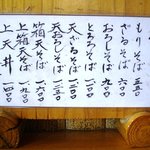 もりそば 五五〇
ざるそば 六〇〇
おろしそば 九〇〇
とろろそば 九〇〇
天ざるそば 一三〇〇
天おろしそば 一六〇〇
箱天そば 一三〇〇
上箱そば 一九〇〇
上天丼 一四〇〇